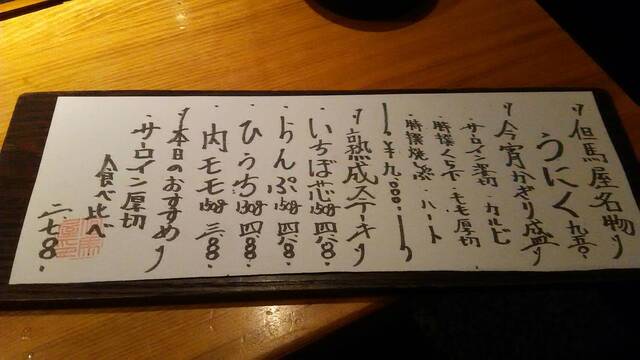 〃但馬屋名物〃
うにく 九五〇
〃今宵かぎり盛〃
サーロイン薄切・カルビ
特撰くら下・モモ厚切
特撰焼しゃぶ・ハート
¥九、〇〇〇
〃熟成ステーキ〃
・いちぼ芯150g 四、八〇〇
・らんぷ150g 四、八〇〇
・ひうち150g 四、八〇〇
・内モモ150g 三、八〇〇
〃本日のおすすめ〃
サーロイン厚切
食べ比べ
二、七〇〇